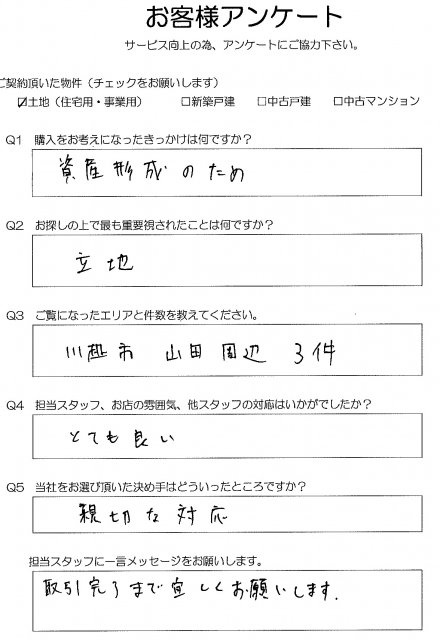 お客様アンケート
サービス向上の為、アンケートにご協力下さい。
ご契約頂いた物件（チェックをお願いします）
☑土地（住宅用・事業用） □新築戸建 □中古戸建 □中古マンション
Q1 購入をお考えになったきっかけは何ですか？
資産形成のため
Q2 お探しの上で最も重要視されたことは何ですか？
立地
Q3 ご覧になったエリアと件数を教えてください。
川越市 山田周辺 3件
Q4 担当スタッフ、お店の雰囲気、他スタッフの対応はいかがでしたか？
とても良い
Q5 当社をお選び頂いた決め手はどういったところですか？
親切な対応
担当スタッフに一言メッセージをお願いします。
取引完了まで宜しくお願いします.